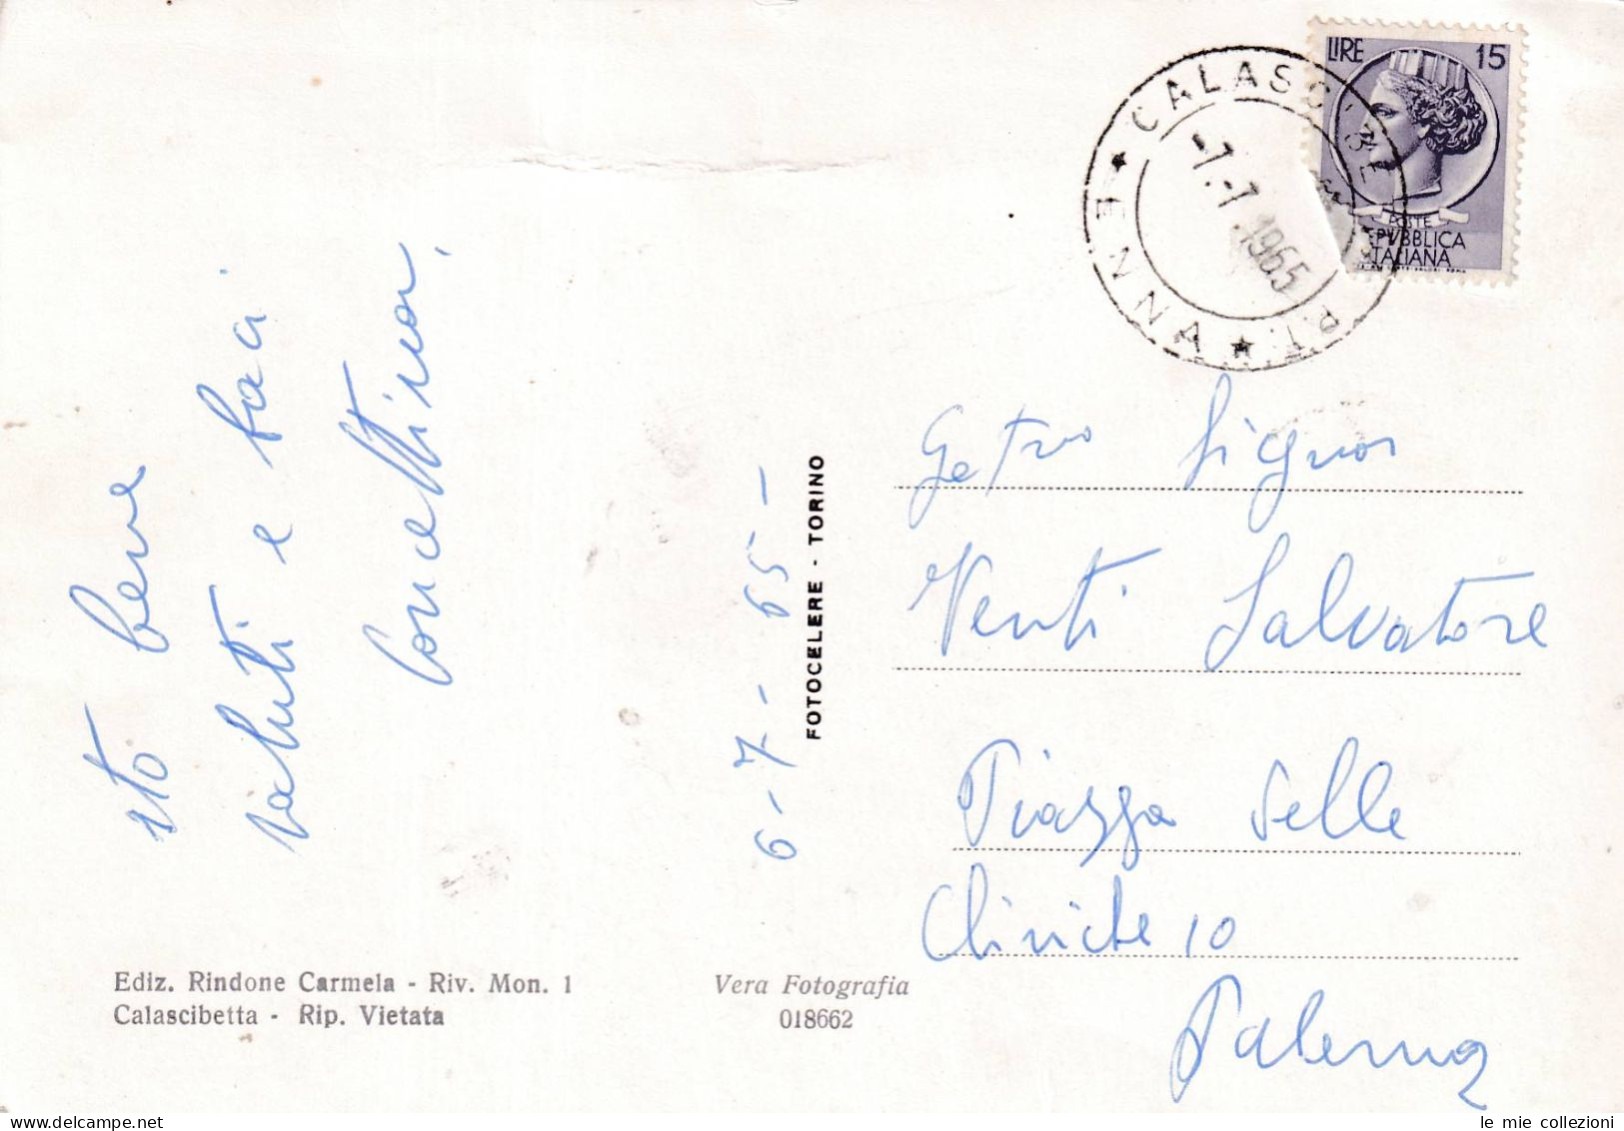 sto bene
saluti e baci
Concettina.
6-7-65-
FOTOCELERE - TORINO
Ediz. Rindone Carmela - Riv. Mon. 1
Calascibetta - Rip. Vietata
Vera Fotografia
018662
LIRE 15
POSTE
REPVBBLICA
ITALIANA
ENNA
P.T.
-7.-7.1965
Signor
Venti Salvatore
Piazza delle
Cliniche 10
Palermo
le mie collezioni